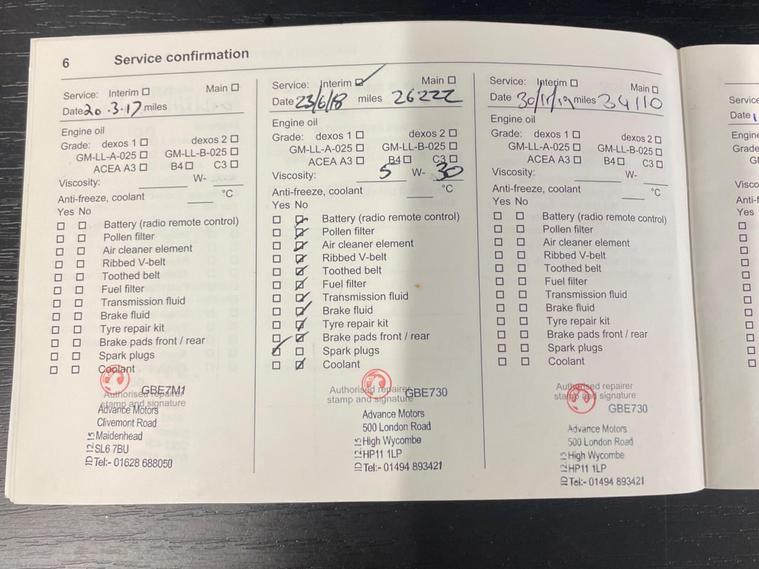 6 Service confirmation
Service: Interim ☐ Main ☐
Date 20.3.17 miles
Engine oil
Grade: dexos 1 ☐ dexos 2 ☐
GM-LL-A-025 ☐ GM-LL-B-025 ☐
ACEA A3 ☐ B4 ☐ C3 ☐
Viscosity: W-
Anti-freeze, coolant °C
Yes No
☐ ☐ Battery (radio remote control)
☐ ☐ Pollen filter
☐ ☐ Air cleaner element
☐ ☐ Ribbed V-belt
☐ ☐ Toothed belt
☐ ☐ Fuel filter
☐ ☐ Transmission fluid
☐ ☐ Brake fluid
☐ ☐ Tyre repair kit
☐ ☐ Brake pads front / rear
☐ ☐ Spark plugs
☐ ☐ Coolant
GBE7M1
Authorised repairer
stamp and signature
Advance Motors
Clivemont Road
Maidenhead
SL6 7BU
Tel:- 01628 688050
Service: Interim ☑ Main ☐
Date 23/6/18 miles 26222
Engine oil
Grade: dexos 1 ☐ dexos 2 ☐
GM-LL-A-025 ☐ GM-LL-B-025 ☐
ACEA A3 ☐ B4 ☐ C3 ☐
Viscosity: 5 W- 30
Anti-freeze, coolant °C
Yes No
☐ ☑ Battery (radio remote control)
☐ ☑ Pollen filter
☐ ☑ Air cleaner element
☐ ☑ Ribbed V-belt
☐ ☑ Toothed belt
☐ ☑ Fuel filter
☐ ☑ Transmission fluid
☐ ☑ Brake fluid
☐ ☑ Tyre repair kit
☐ ☑ Brake pads front / rear
☑ ☐ Spark plugs
☐ ☑ Coolant
Authorised repairer
GBE730
stamp and signature
Advance Motors
500 London Road
High Wycombe
HP11 1LP
Tel:- 01494 893421
Service: Interim ☐ Main ☐
Date 30/11/19 miles 34110
Engine oil
Grade: dexos 1 ☐ dexos 2 ☐
GM-LL-A-025 ☐ GM-LL-B-025 ☐
ACEA A3 ☐ B4 ☐ C3 ☐
Viscosity: W-
Anti-freeze, coolant °C
Yes No
☐ ☐ Battery (radio remote control)
☐ ☐ Pollen filter
☐ ☐ Air cleaner element
☐ ☐ Ribbed V-belt
☐ ☐ Toothed belt
☐ ☐ Fuel filter
☐ ☐ Transmission fluid
☐ ☐ Brake fluid
☐ ☐ Tyre repair kit
☐ ☐ Brake pads front / rear
☐ ☐ Spark plugs
☐ ☐ Coolant
Authorised repairer
stamp and signature
GBE730
Advance Motors
500 London Road
High Wycombe
HP11 1LP
Tel:- 01494 893421
Service
Date
Engine
Grade
Visco
Anti-f
Yes